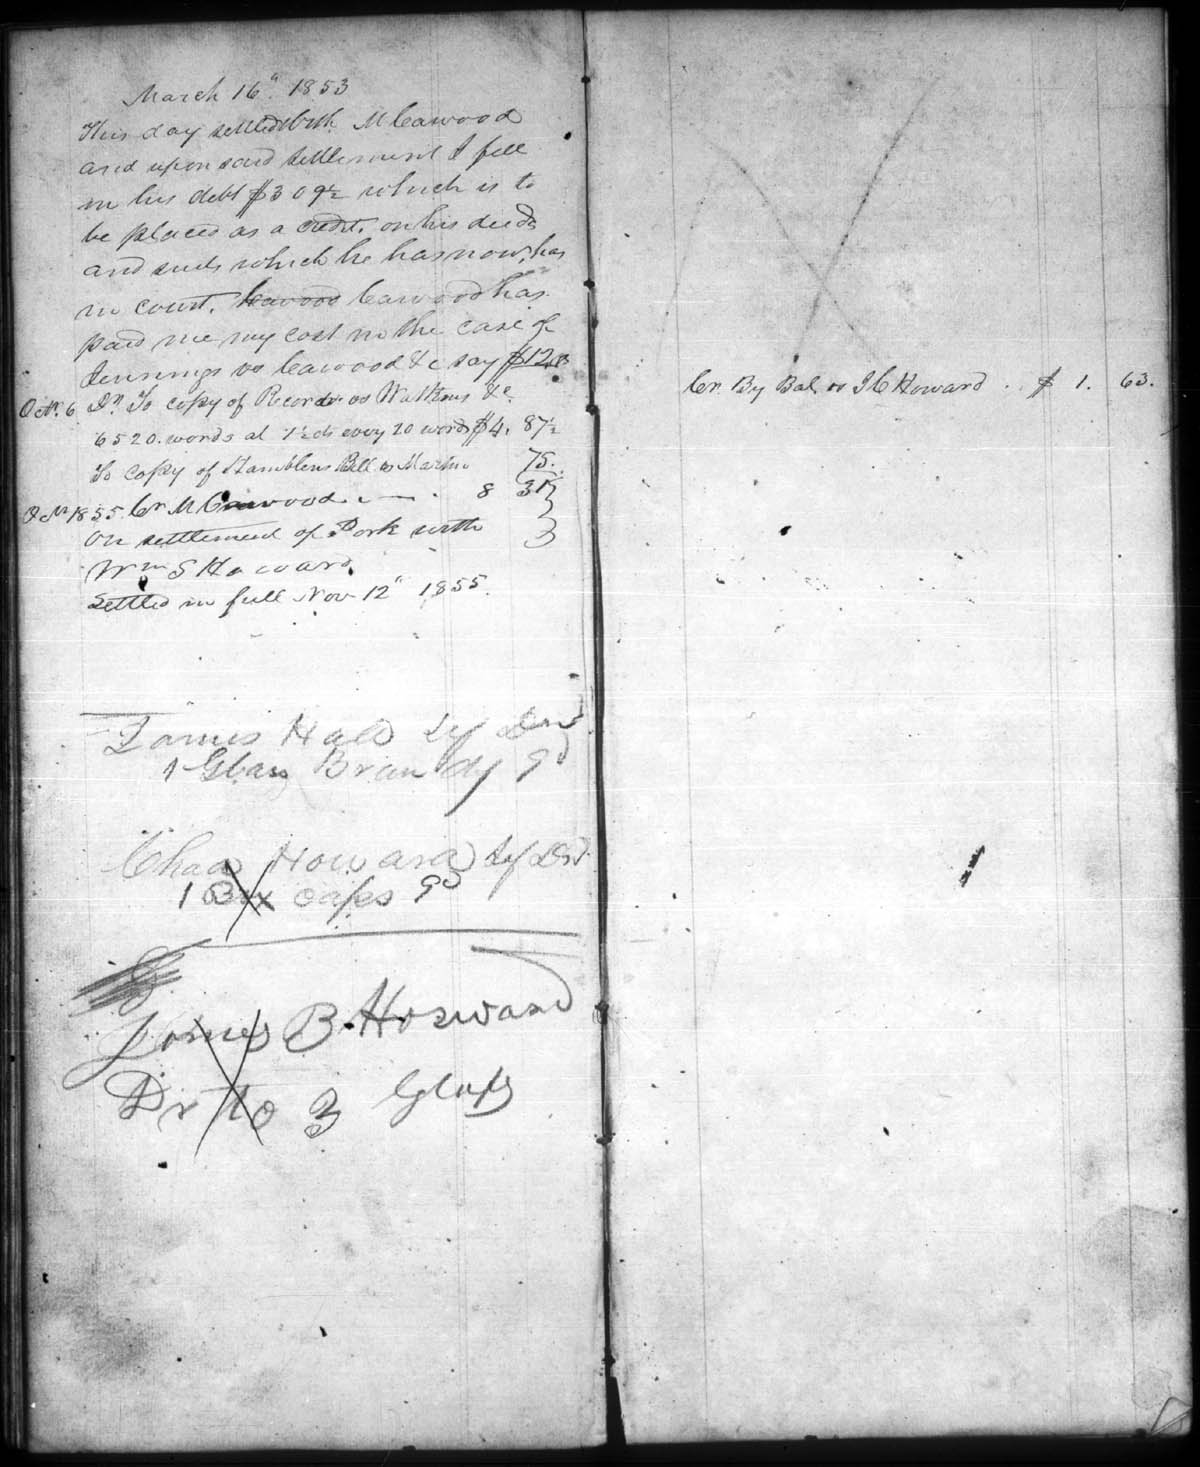 March 16" 1853
This day settled with M Cawood
and upon said settlement I fell
in his debt $3 09½ which is to
be placed as a credit, on his deeds
and suits which he has now, has
in court. Cawood Cawood has
paid me my cost in the case of
Jennings vs Cawood &c say $12.
Oct. 6 Dr. To copy of Record vs Watkins &c
6520. words at 1½ cts every 20 words $4. 87½
To copy of Hamblens Bill vs Martin 75.
1855. Cr M Cawood. 8 31
On settlement of Pork with
Wm S Howard,
Settled in full Nov 12" 1855.
James Hall
1 Glass Brandy 9d
Chad Howard
1 Box caps 9d
James B. Howard
Dr to 3 Glass
Cr. By Bal. vs J C Howard . . $ 1. 63.